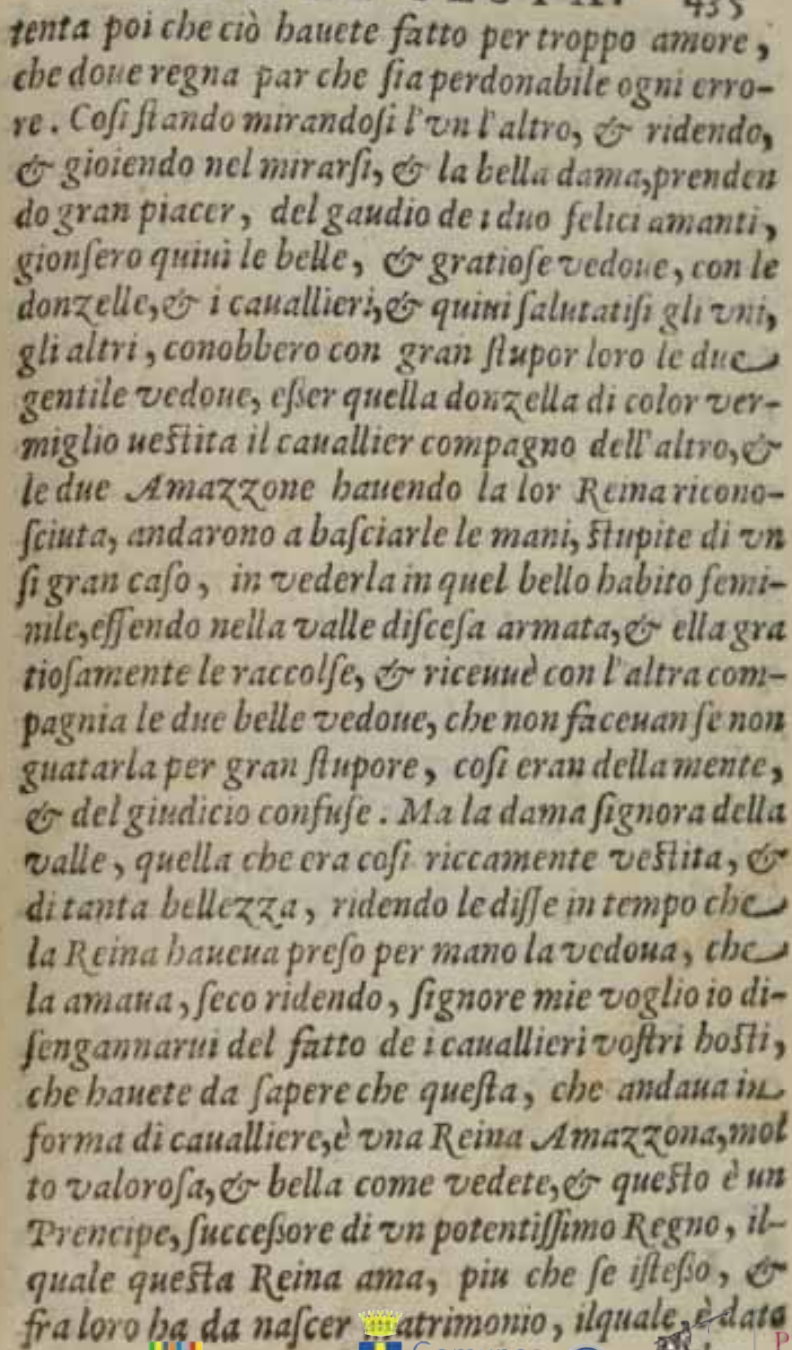 435
tenta poi che ciò hauete fatto per troppo amore,
che doue regna par che ſia perdonabile ogni erro-
re. Coſi ſtando mirandoſi l'vn l'altro, & ridendo,
& gioiendo nel mirarſi, & la bella dama, prenden
do gran piacer, del gaudio de i duo felici amanti,
gionſero quiui le belle, & gratioſe vedoue, con le
donzelle, & i cauallieri, & quiui ſalutatiſi gli vni,
gli altri, conobbero con gran ſtupor loro le due
gentile vedoue, eſſer quella donzella di color ver-
miglio ueſtita il cauallier compagno dell'altro, &
le due Amazzone hauendo la lor Reina ricono-
ſciuta, andarono a baſciarle le mani, ſtupite di vn
ſi gran caſo, in vederla in quel bello habito femi-
nile, eſſendo nella valle diſceſa armata, & ella gra
tioſamente le raccolſe, & riceuuè con l'altra com-
pagnia le due belle vedoue, che non faceuan ſe non
guatarla per gran ſtupore, coſi eran della mente,
& del giudicio confuſe. Ma la dama ſignora della
valle, quella che era coſi riccamente veſtita, &
di tanta bellezza, ridendo le diſſe in tempo che
la Reina haueua preſo per mano la vedoua, che
la amaua, ſeco ridendo, ſignore mie voglio io di-
ſengannarui del fatto de i cauallieri voſtri hoſti,
che hauete da ſapere che queſta, che andaua in
forma di caualliere, è vna Reina Amazzona, mol
to valoroſa, & bella come vedete, & queſto è un
Prencipe, ſucceſſore di vn potentiſſimo Regno, il-
quale queſta Reina ama, piu che ſe iſteſſo, &
fra loro ha da naſcer matrimonio, ilquale, è dato